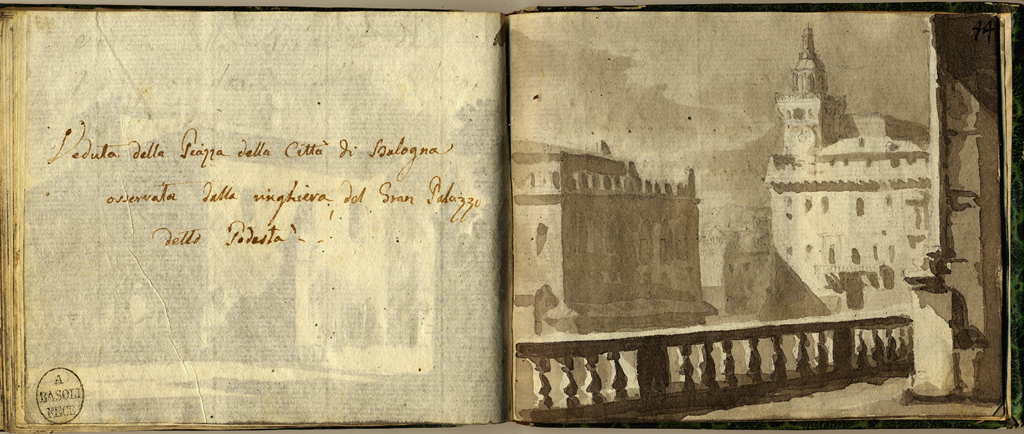 Veduta della Piazza della Città di Bologna
osservata dalla ringhiera del Gran Palazzo
detto Podestà
A
BASOLI
FECE
44